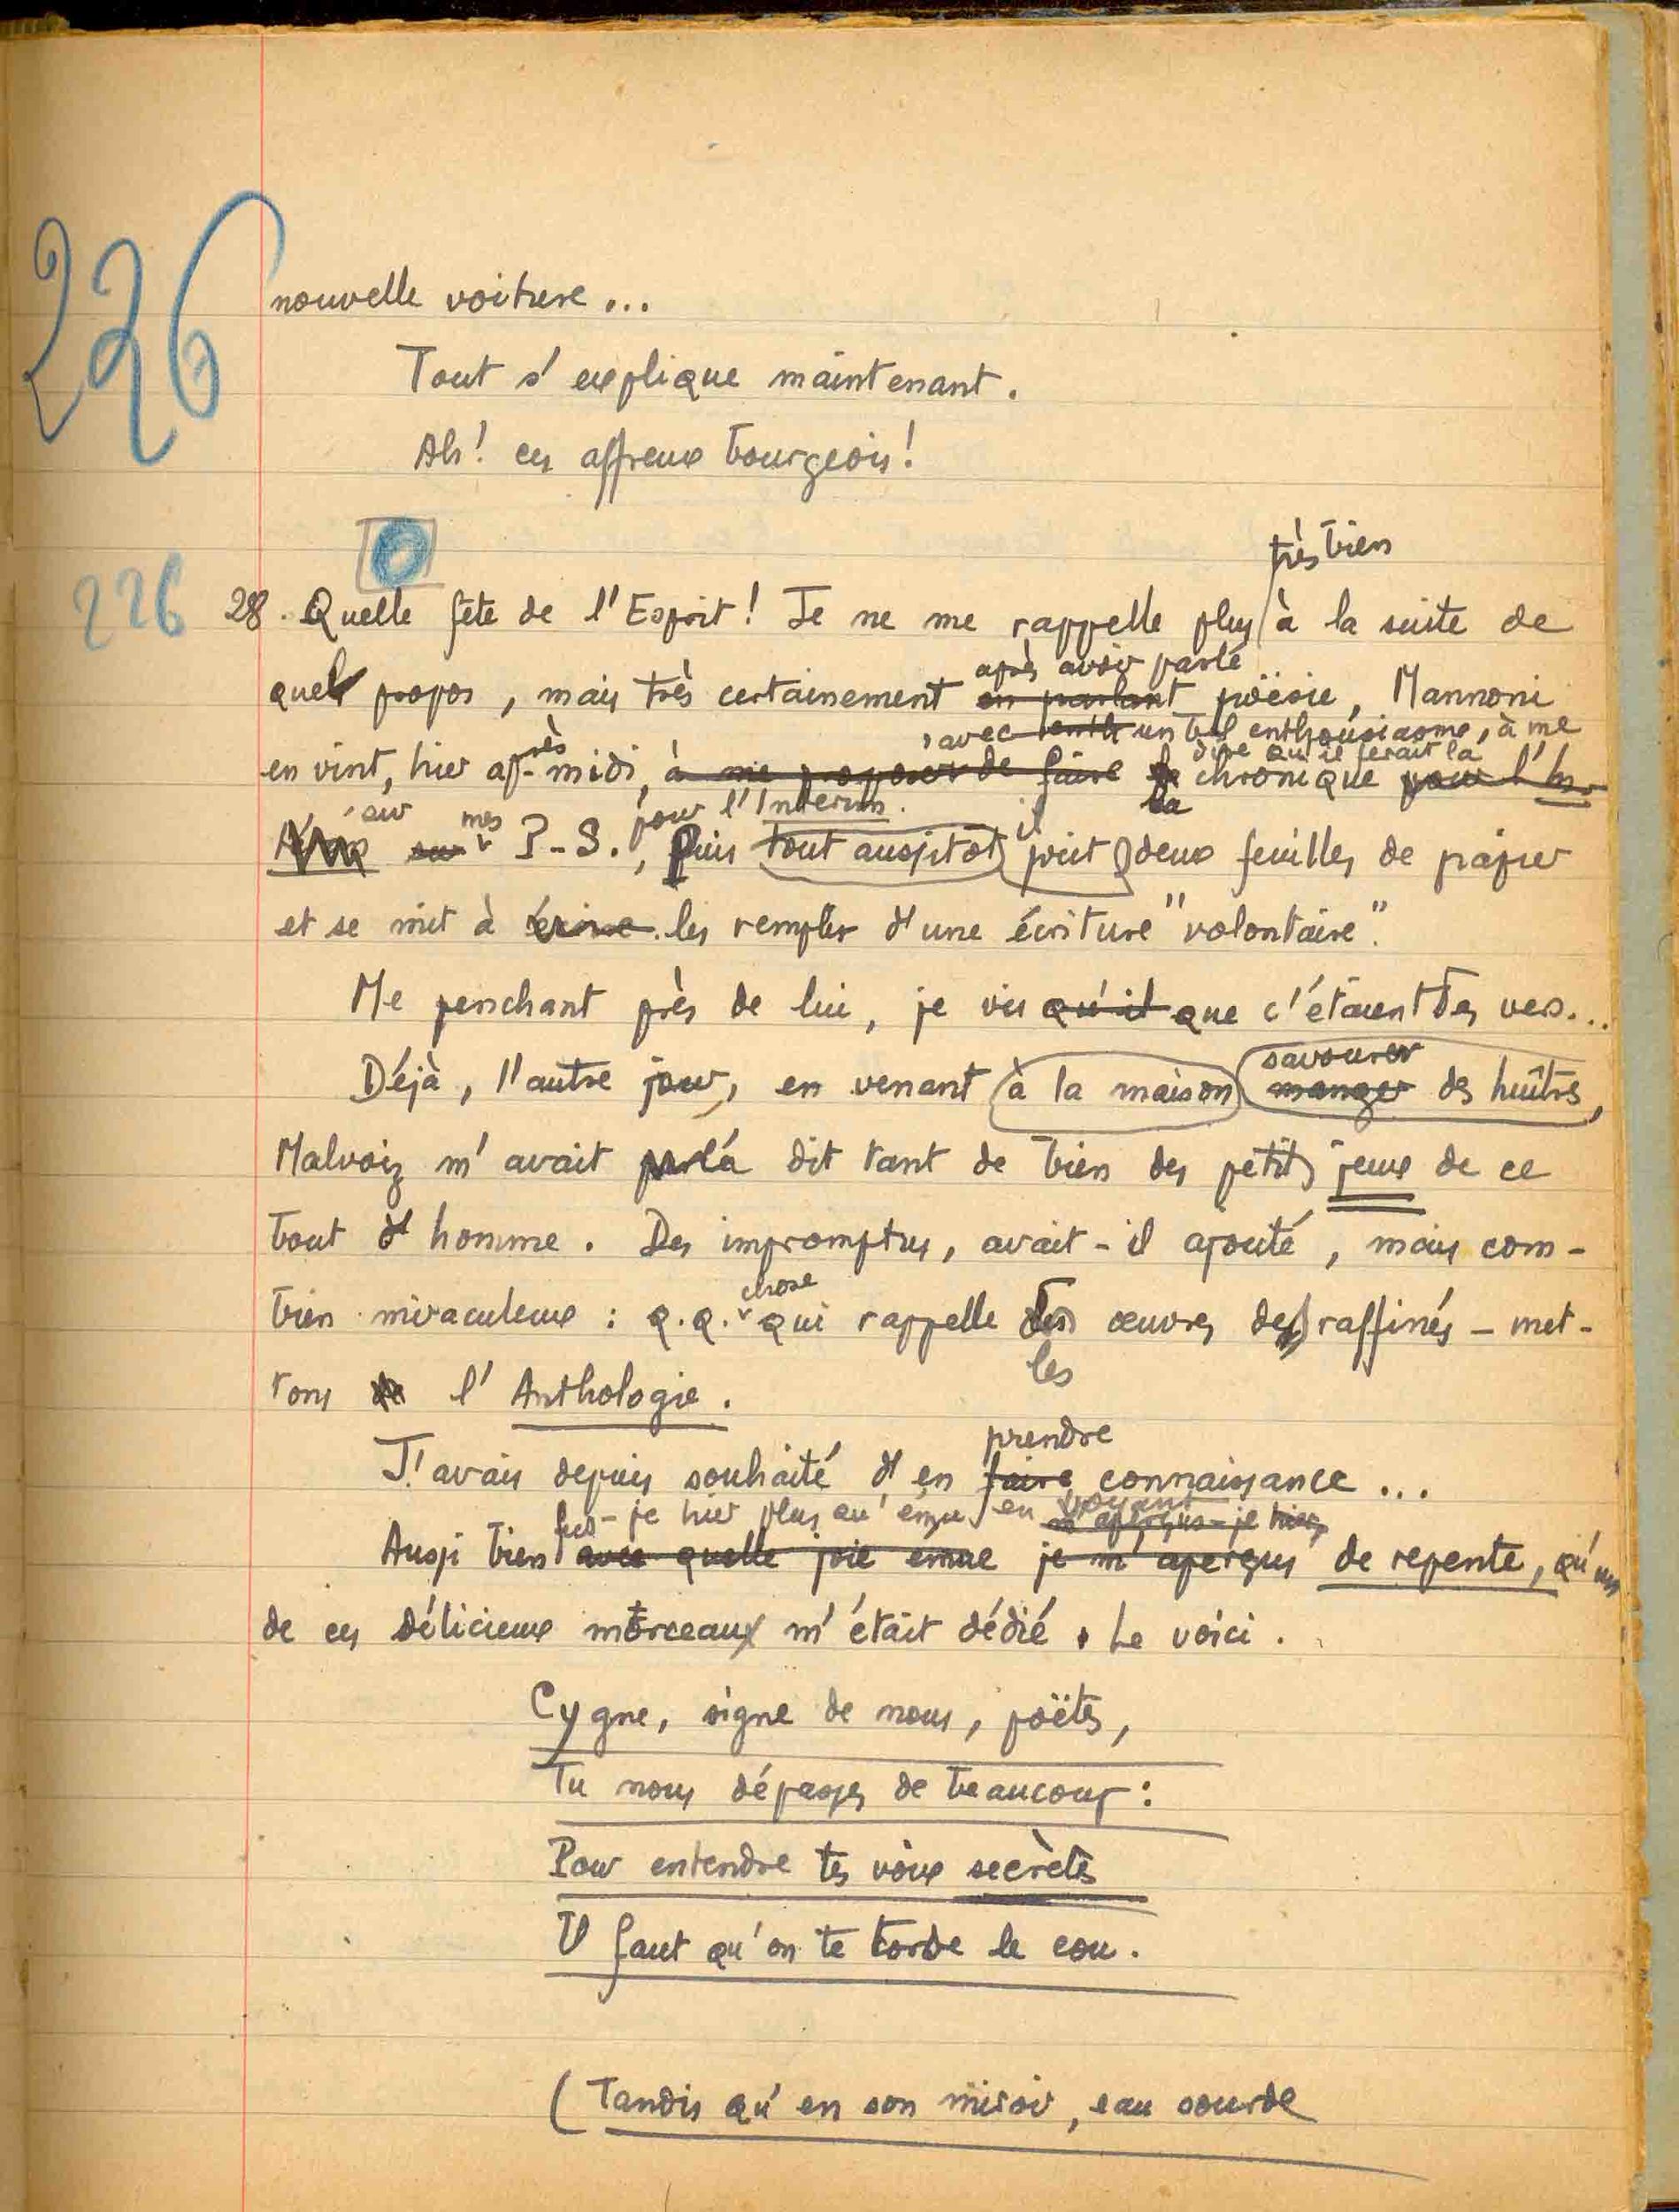 226
nouvelle voiture...
Tout s'explique maintenant.
Ah! ces affreux bourgeois!
très bien
226
28. Quelle fête de l'Esprit! Je ne me rappelle plus à la suite de
après avoir parlé
quel propos, mais très certainement en parlant poësie, Mannoni
, avec un tel enthousiasme, à me
dire qu'il ferait la
en vint, hier après-midi, à me proposer de faire la chronique pour l'In-
sur mes pour l'Interim.
sur P-S., Puis tout aussitôt il prit deux feuilles de papier
et se mit à écrire les remplir d'une écriture "volontaire".
Me penchant près de lui, je vis qu'il que c'étaient des vers...
savourer
Déjà, l'autre jour, en venant à la maison manger des huîtres,
Malvoiz m'avait parlé dit tant de bien des petits jeux de ce
bout d'homme. Des impromptus, avait-il ajouté, mais com-
chose
bien miraculeux : q.q. qui rappelle des œuvres des raffinés – met-
les
tons de l'Anthologie.
prendre
J'avais depuis souhaité d'en faire connaissance...
fus-je hier plus qu'ému en voyant m'aperçus-je hier,
Aussi bien avec quelle joie emue je m'aperçus de repente, qu'un
de ces délicieux morceaux m'était dédié. Le voici.
Cygne, signe de nous, poëtes,
Tu nous dépasses de beaucoup :
Pour entendre tes voix secrètes
Il faut qu'on te torde le cou.
(Tandis qu'en son miroir, eau sourde